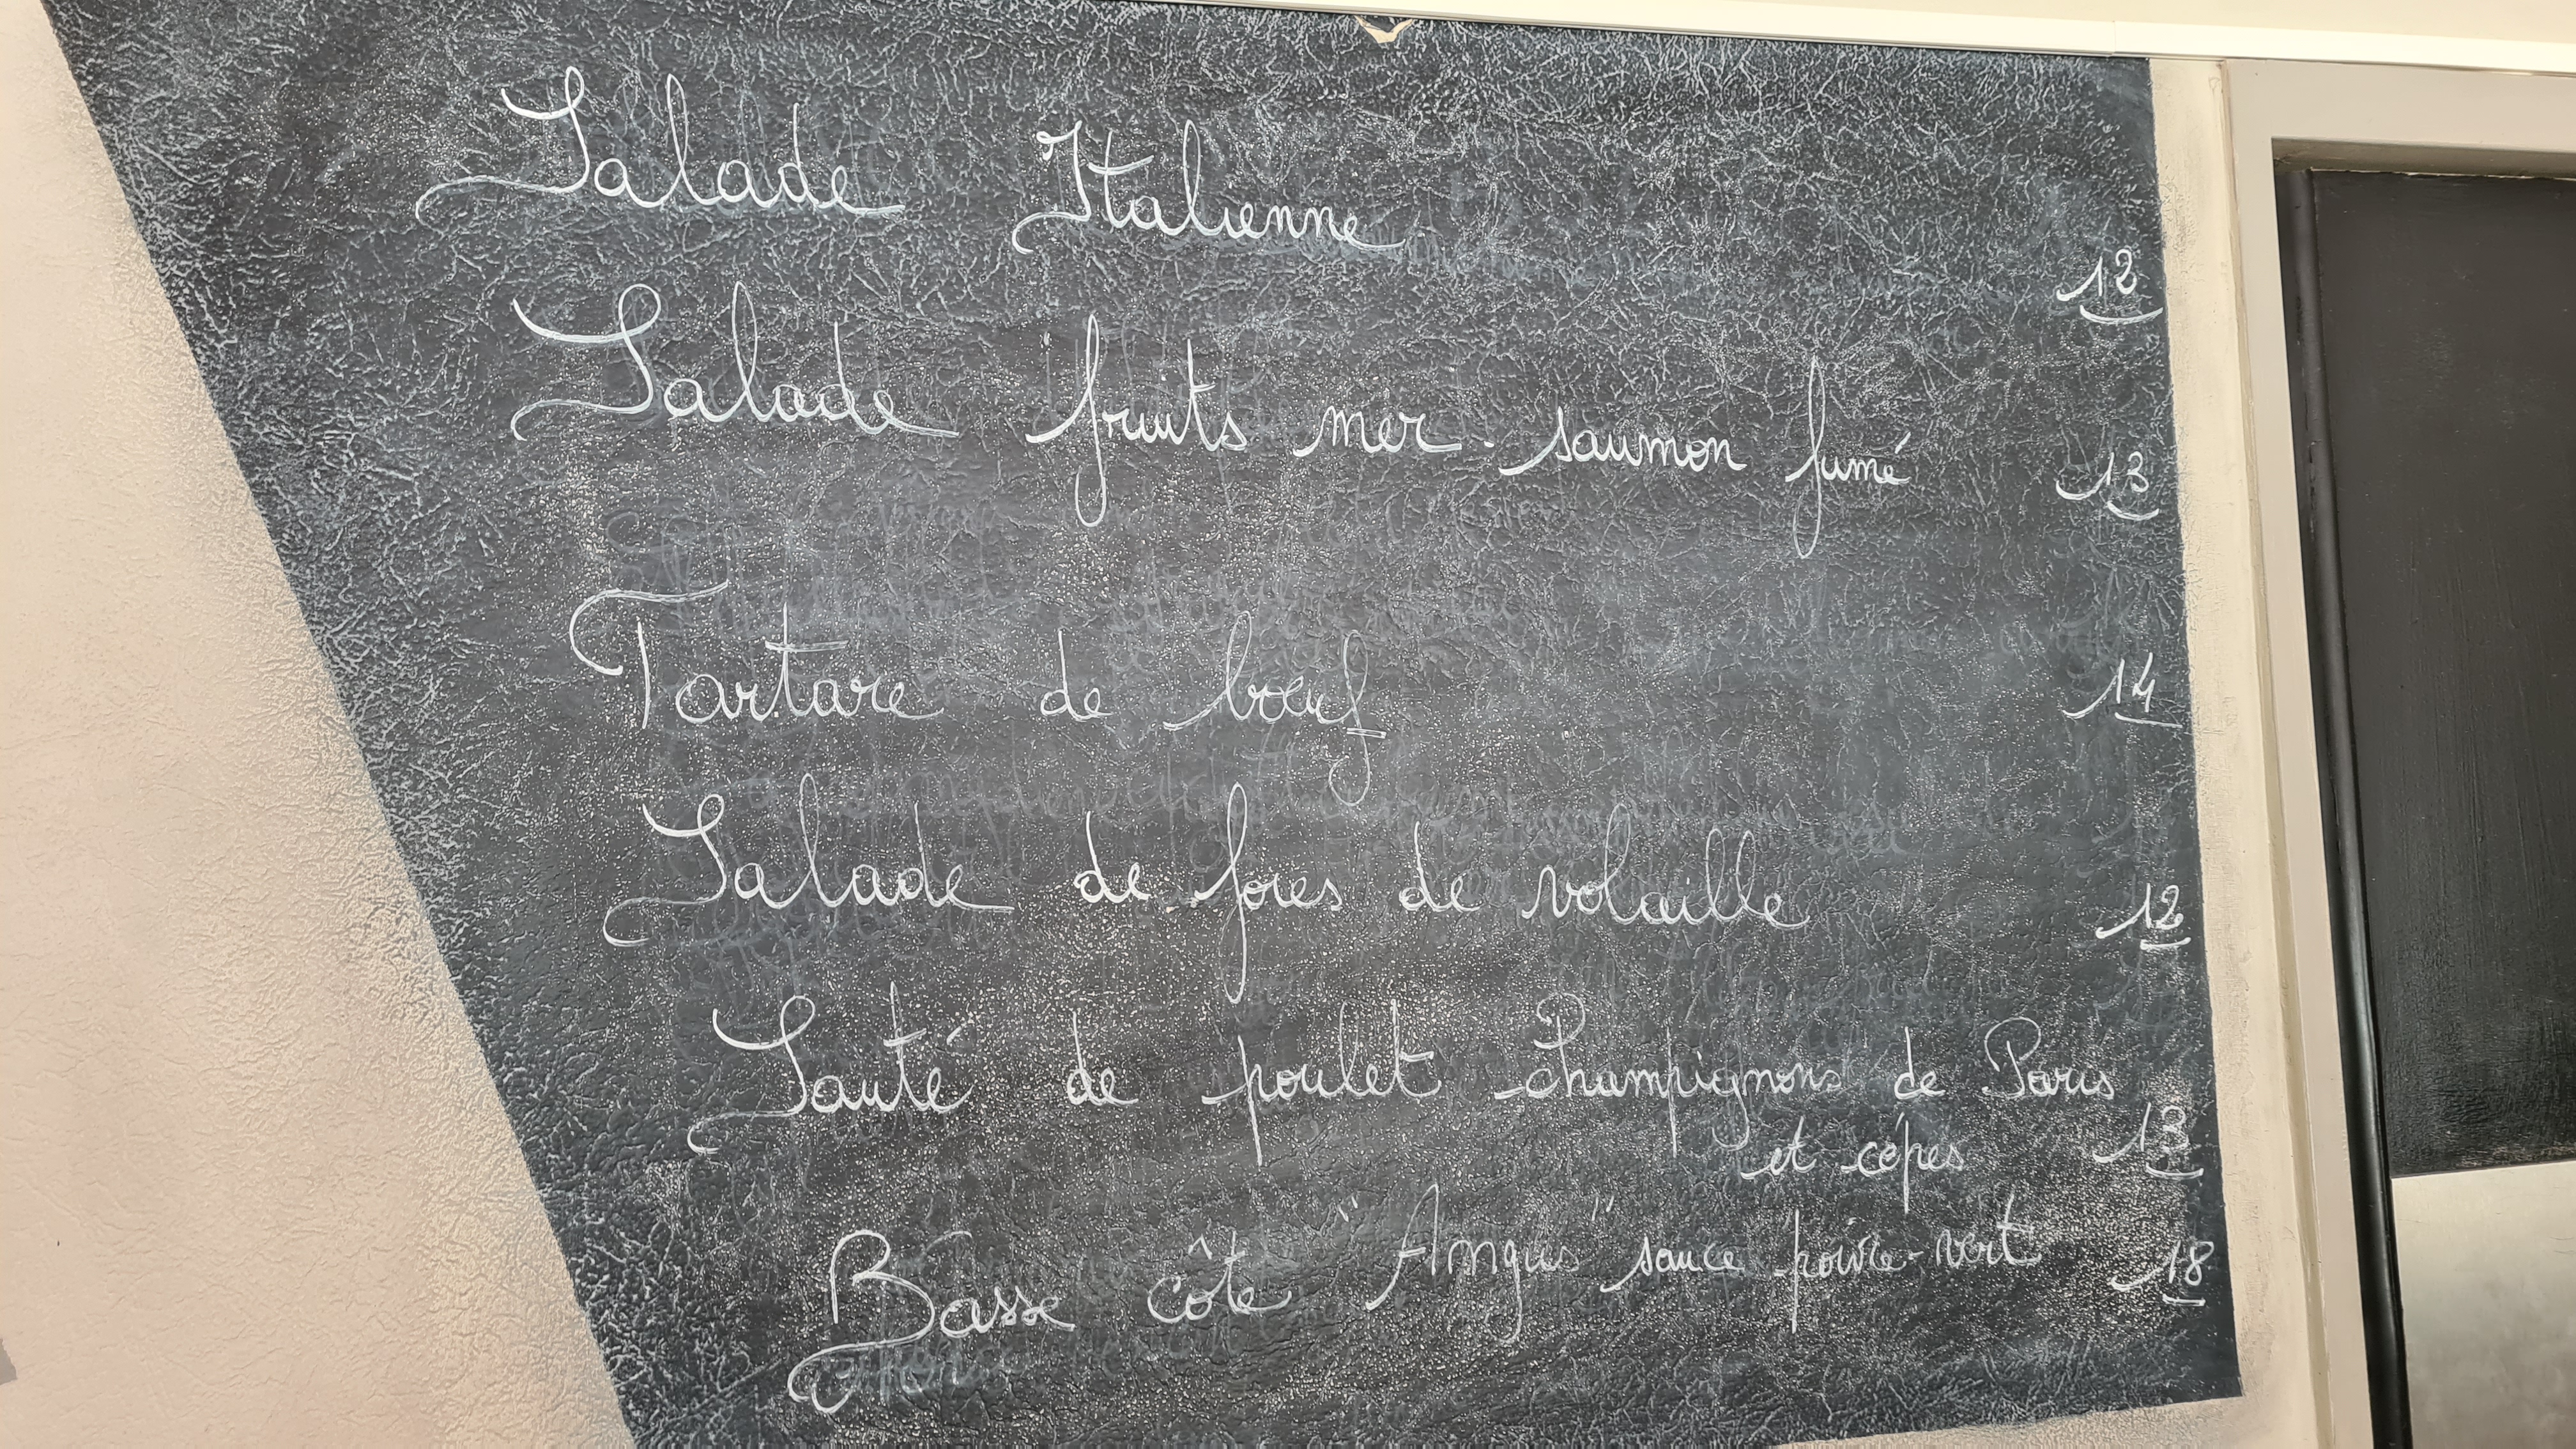 Salade Italienne 12
Salade fruits mer - saumon fumé 13
Tartare de bœuf 14
Salade de foies de volaille 12
Sauté de poulet Champignons de Paris
et cépes 13
Basse côte "Angus" sauce poivre-vert 18